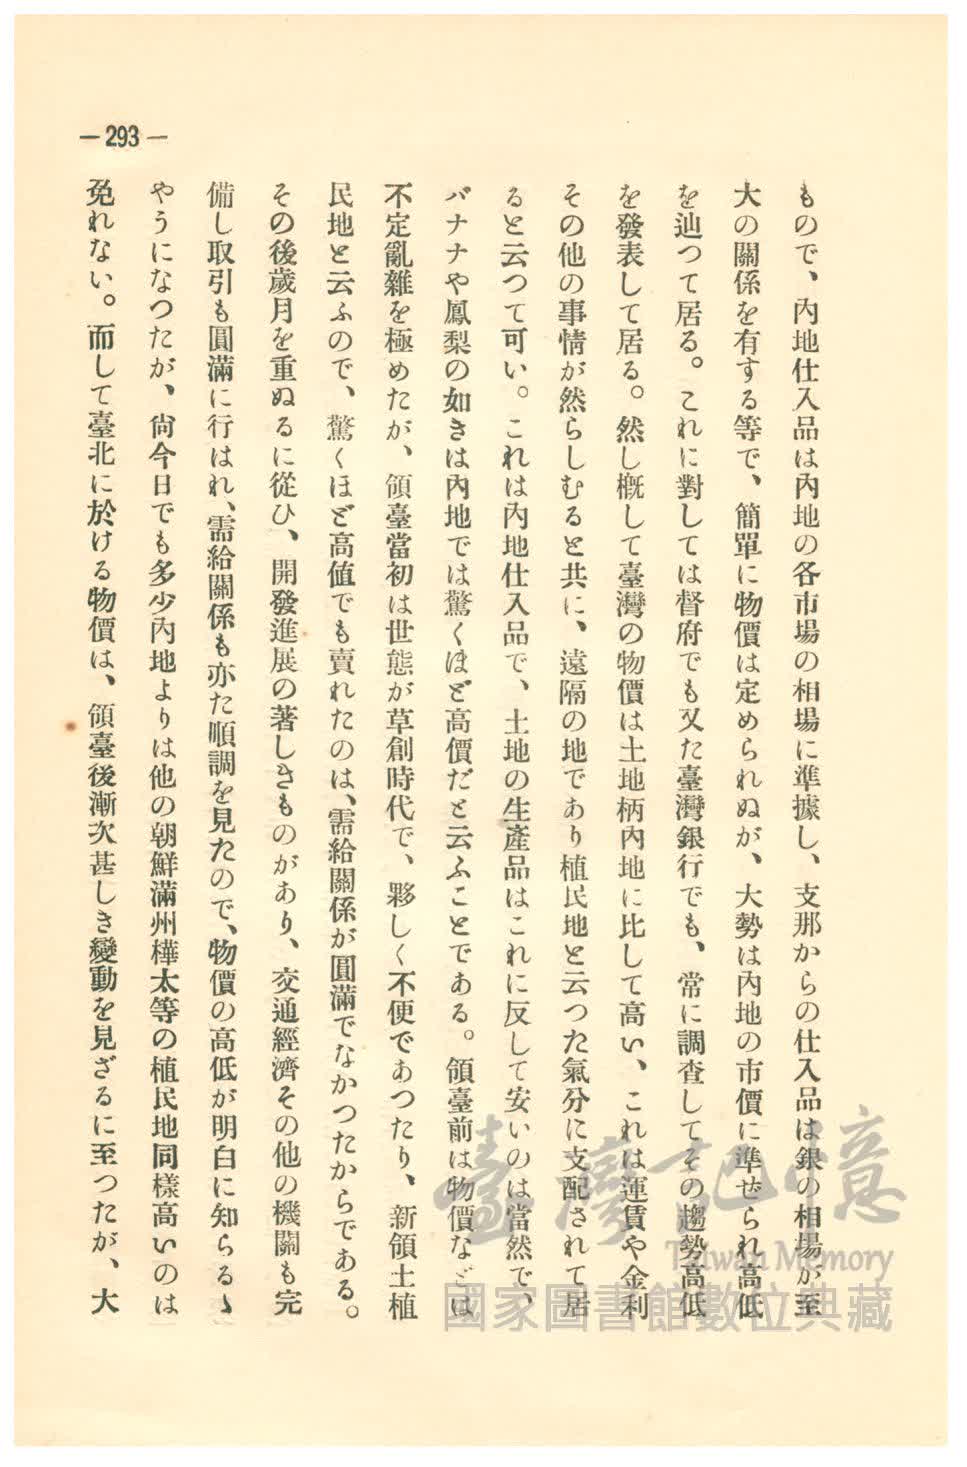 —293—
もので、內地仕入品は內地の各市場の相場に準據し、支那からの仕入品は銀の相場が至
大の關係を有する等で、簡單に物價は定められぬが、大勢は內地の市價に準せられ高低
を辿つて居る。これに對しては督府でも又た臺灣銀行でも、常に調査してその趨勢高低
を發表して居る。然し概して臺灣の物價は土地柄內地に比して高い、これは運賃や金利
その他の事情が然らしむると共に、遠隔の地であり植民地と云つた氣分に支配されて居
ると云つて可い。これは內地仕入品で、土地の生產品はこれに反して安いのは當然で、
バナナや鳳梨の如きは內地では驚くほど高價だと云ふことである。領臺前は物價などは
不定亂雜を極めたが、領臺當初は世態が草創時代で、夥しく不便であつたり、新領土植
民地と云ふので、驚くほど高値でも賣れたのは、需給關係が圓滿でなかつたからである。
その後歲月を重ぬるに從ひ、開發進展の著しきものがあり、交通經濟その他の機關も完
備し取引も圓滿に行はれ、需給關係も亦た順調を見たので、物價の高低が明白に知らるゝ
やうになつたが、尙今日でも多少內地よりは他の朝鮮滿州樺太等の植民地同樣高いのは
免れない。而して臺北に於ける物價は、領臺後漸次甚しき變動を見ざるに至つたが、大
臺灣記憶
Taiwan Memory
國家圖書館數位典藏